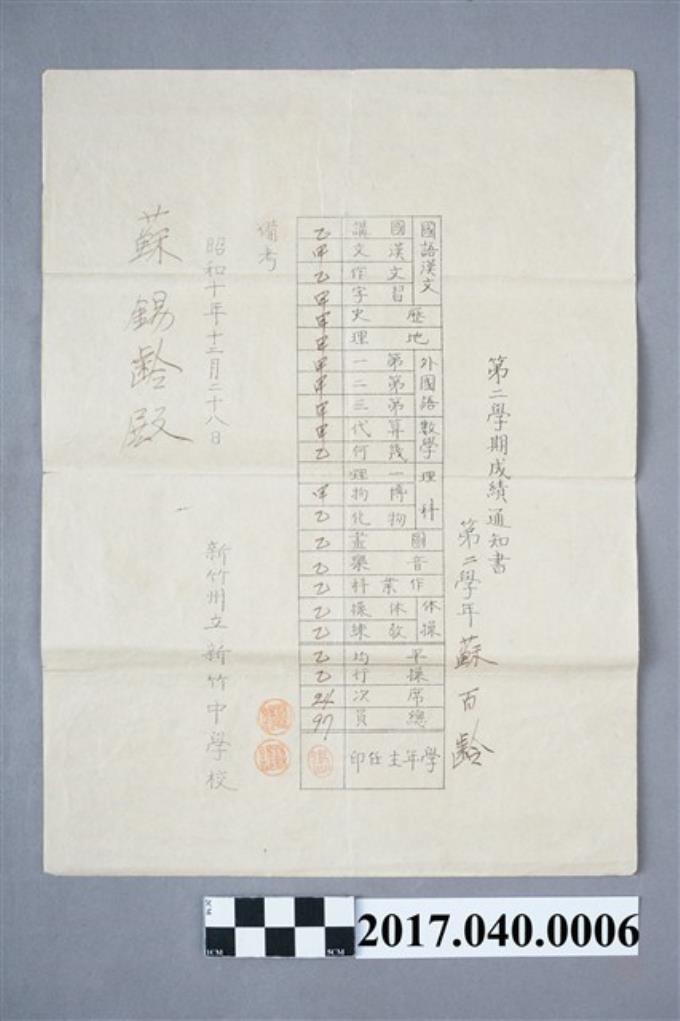 第二學期成績通知書
第二學年 蘇百齡
國語漢文
國講 乙
漢文 甲
文作 乙
習字 甲
歷史 甲
地理 甲
外國語
第一 甲
第二 甲
第三 甲
數學
算代 甲
幾何 乙
理科
一理
博物 甲
物化 乙
圖畫 乙
音樂 乙
作業科 乙
体操
体操 乙
教練 乙
平均 乙
操行 乙
席次 24
總員 97
學年主任印
備考
昭和十年十二月二十八日
新竹州立新竹中學校
蘇錫齡殿
1CM
5CM
2017.040.0006